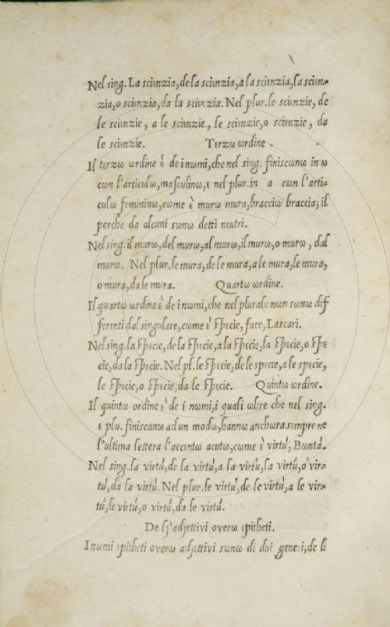 Nel sing. La scienzia, de la scienzia, a la scienzia, la scien-
zia, o scienzia, da la scienzia. Nel plur. le scienzie, de
le scienzie, a le scienzie, le scienzie, o scienzie, da
le scienzie. Terzω ωrdine.
Il terzω ωrdine ὲ de i nωmi, che nel sing. finiscωnω in ω
cωn l'articulω, masculinω, ε nel plur. in a cωn l'arti-
culω femininω, cωme ὲ murω mura, bracciω braccia; il
perchè da alcuni sωnω detti neutri.
Nel sing. il murω, del murω, al murω, il murω, o murω, dal
murω. Nel plur. le mura, de le mura, a le mura, le mura,
o mura, da le mura. Quartω ωrdine.
Il quartω ωrdine ὲ de i nωmi, che nel plurale nωn sωnω dif
ferenti dal singolare, cωme ὲ specie, face, Lascari.
Nel sing. la specie, de la specie, a la specie, la specie, o spe
cie, da la specie. Nel pl. le specie, de le specie, a le specie,
le specie, o specie, da le specie. Quintω ωrdine.
Il quintω ωrdine ὲ de i nωmi, i quali ωltre che nel sing.
ε plu. finiscanω ad un mωdω, hannω anchωra sempre ne
l'ultima lettera l'accentω acutω, cωme ὲ virtú, Bωntá.
Nel sing. la virtú, de la virtú, a la virtú, la virtú, o vir-
tú, da la virtú. Nel plur. le virtú, de le virtú, a le vir-
tú, le virtú, o virtú, da le virtú.
De lj'adjettivi ωverω εpitheti.
I nωmi εpitheti ωverω adjettivi sωnω di dui geneεi; de li